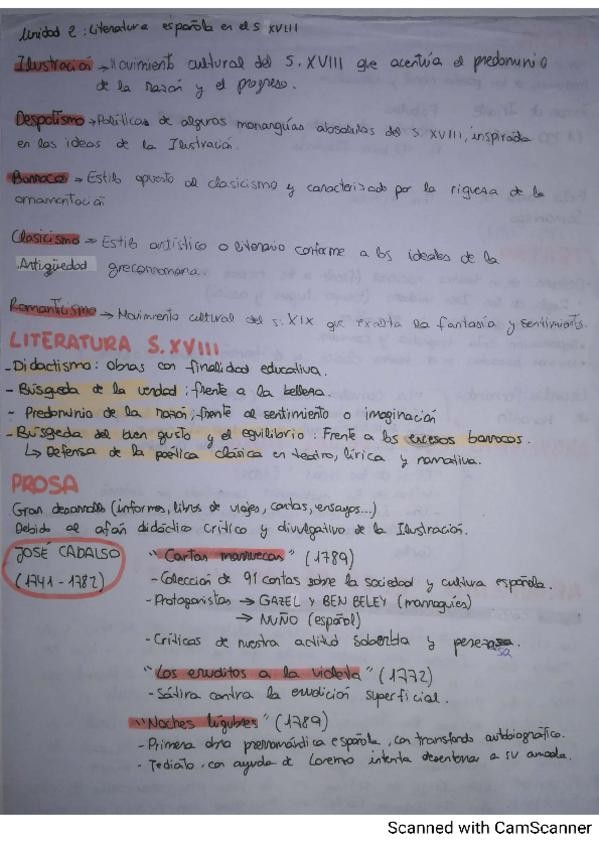 Unidad 2: Literatura española en el s XVIII
Ilustración → Movimiento cultural del S. XVIII que acentúa el predominio
de la razón y el progreso.
Despotismo → Políticas de algunas monarquías absolutas del s XVIII, inspirada
en las ideas de la Ilustración.
Barroco → Estilo opuesto al clasicismo y caracterizado por la riqueza de la
ornamentación
Clasicismo → Estilo artístico o literario conforme a los ideales de la
Antigüedad grecorromana.
Romanticismo → Movimiento cultural del s. XIX que exalta la fantasía y sentimiento.
LITERATURA S. XVIII
- Didactismo: Obras con finalidad educativa.
- Búsqueda de la verdad: frente a la belleza.
- Predominio de la razón; frente al sentimiento o imaginación
- Búsqueda del buen gusto y el equilibrio: Frente a los excesos barrocos.
↳ Defensa de la poética clásica en teatro, lírica y narrativa.
PROSA
Gran desarrollo (informes, libros de viajes, cartas, ensayos...)
Debido al afán didáctico crítico y divulgativo de la Ilustración.
JOSÉ CADALSO
(1741-1782)
"Cartas marruecas" (1789)
- Colección de 91 cartas sobre la sociedad y cultura española.
- Protagonistas → GAZEL Y BEN BELEY (marroquíes)
→ NUÑO (español)
- Críticas de nuestra actitud soberbia y perezosa
"Los eruditos a la violeta" (1772)
- Sátira contra la erudición superficial.
"Noches lúgubres" (1789)
- Primera obra prerromántica española, con transfondo autobiográfico.
- Tediato, con ayuda de Lorenzo intenta desenterrar a su amada.
Scanned with CamScanner